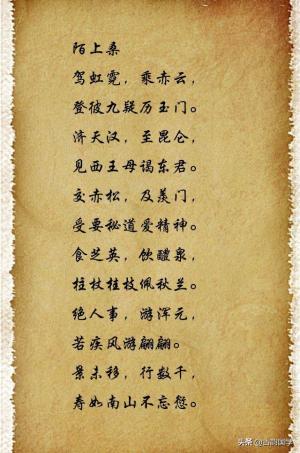 陌上桑
驾虹霓，乘赤云，
登彼九疑历玉门。
济天汉，至昆仑，
见西王母谒东君。
交赤松，及羡门，
受要秘道爱精神。
食芝英，饮醴泉，
拄杖桂枝佩秋兰。
绝人事，游浑元，
若疾风游翩翩。
景未移，行数千，
寿如南山不忘愆。
头条@古韵国学